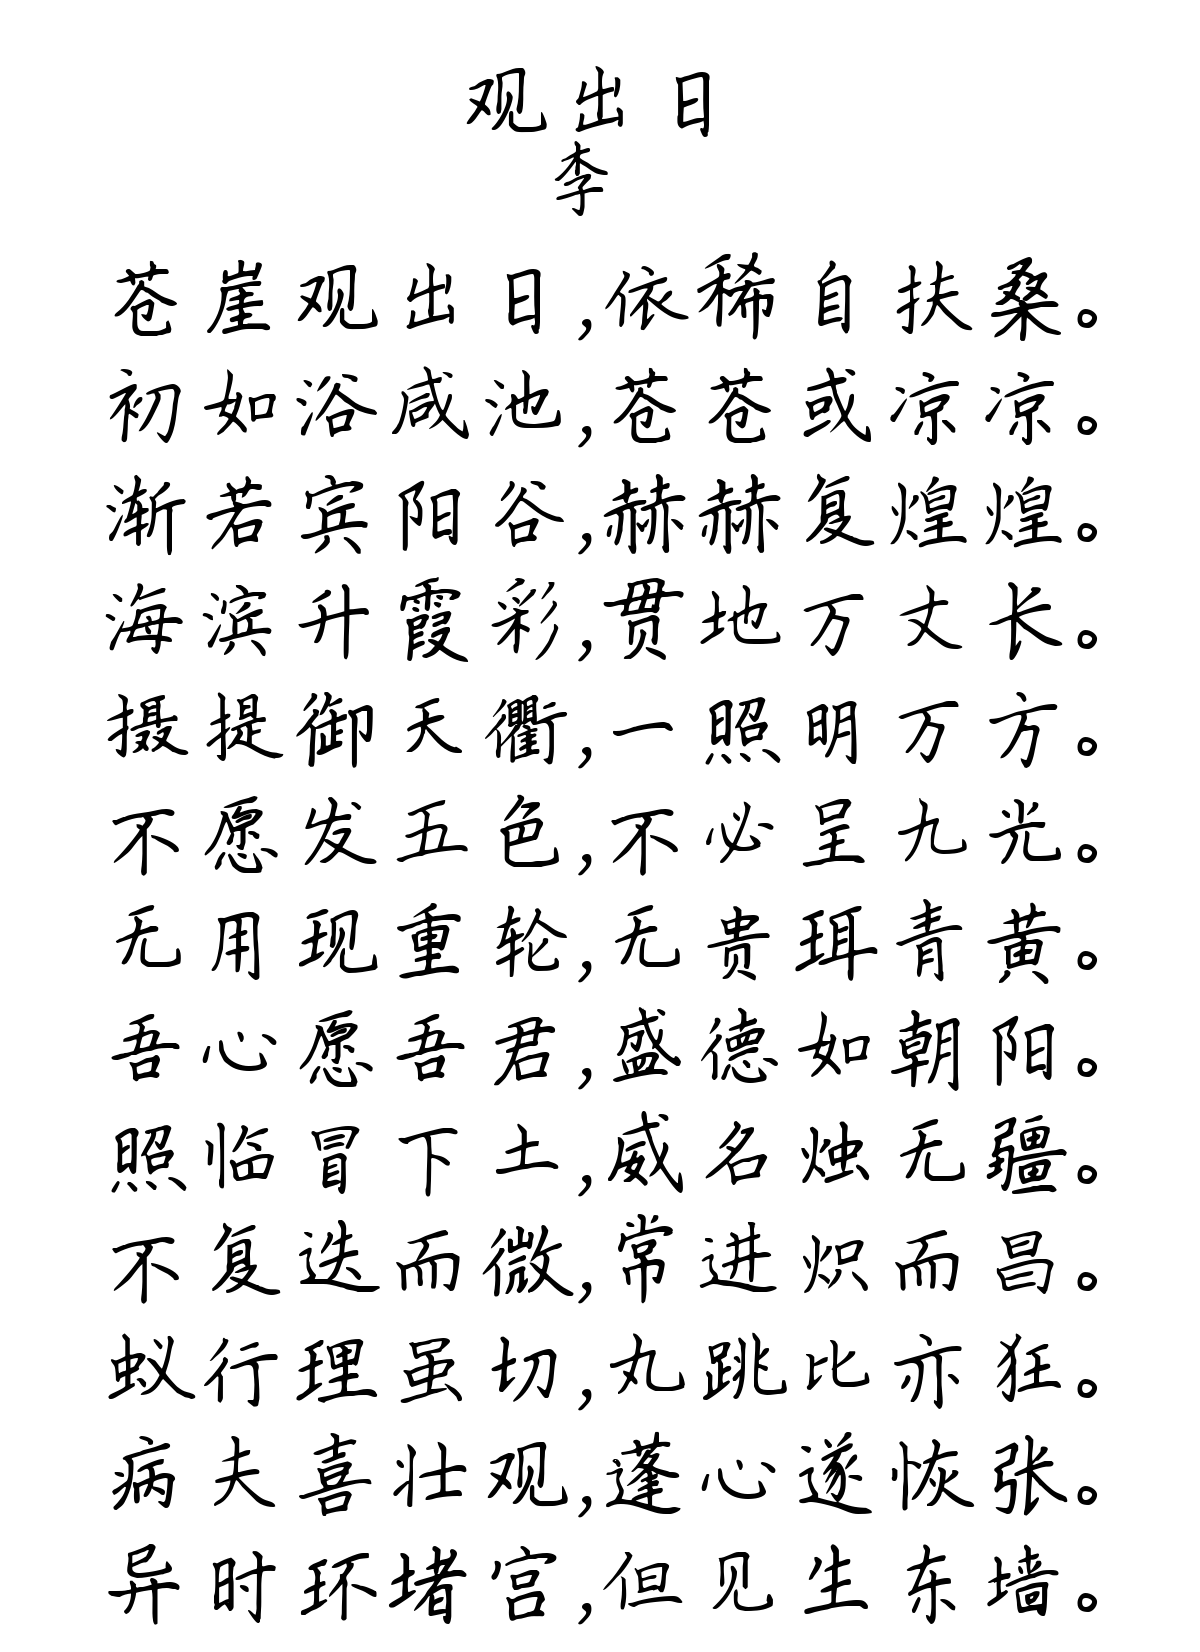 观出日
李
苍崖观出日,依稀自扶桑。
初如浴咸池,苍苍或凉凉。
渐若宾阳谷,赫赫复煌煌。
海滨升霞彩,贯地万丈长。
摄提御天衢,一照明万方。
不愿发五色,不必呈九光。
无用现重轮,无贵珥青黄。
吾心愿吾君,盛德如朝阳。
照临冒下土,威名烛无疆。
不复迭而微,常进炽而昌。
蚁行理虽切,丸跳比亦狂。
病夫喜壮观,蓬心遂恢张。
异时环堵宫,但见生东墙。